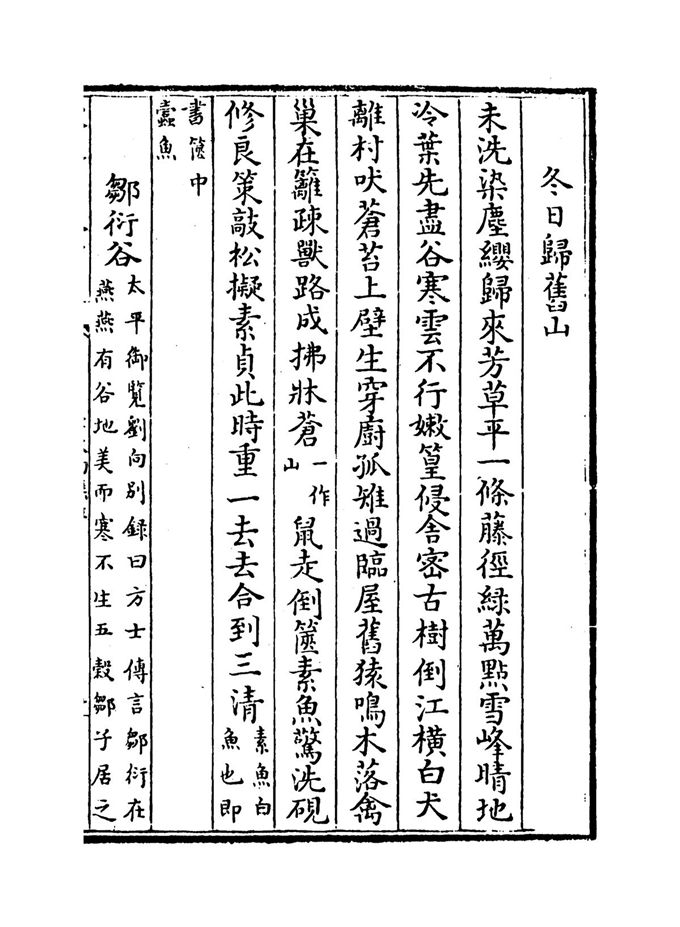 冬日歸舊山
未洗染塵纓歸來芳草平一條藤徑緑萬點雪峰晴地
冷葉先盡谷寒雲不行嫩篁侵舍密古樹倒江橫白犬
離村吠蒼苔上壁生穿廚孤雉過臨屋舊猿鳴木落禽
巢在籬疎獸路成拂牀蒼一作山鼠走倒篋素魚驚洗硯
修良策敲松擬素貞此時重一去去合到三清素魚白魚也即
書篋中蠹魚
鄒衍谷太平御覽劉向别録曰方士傳言鄒衍在燕燕有谷地美而寒不生五穀鄒子居之